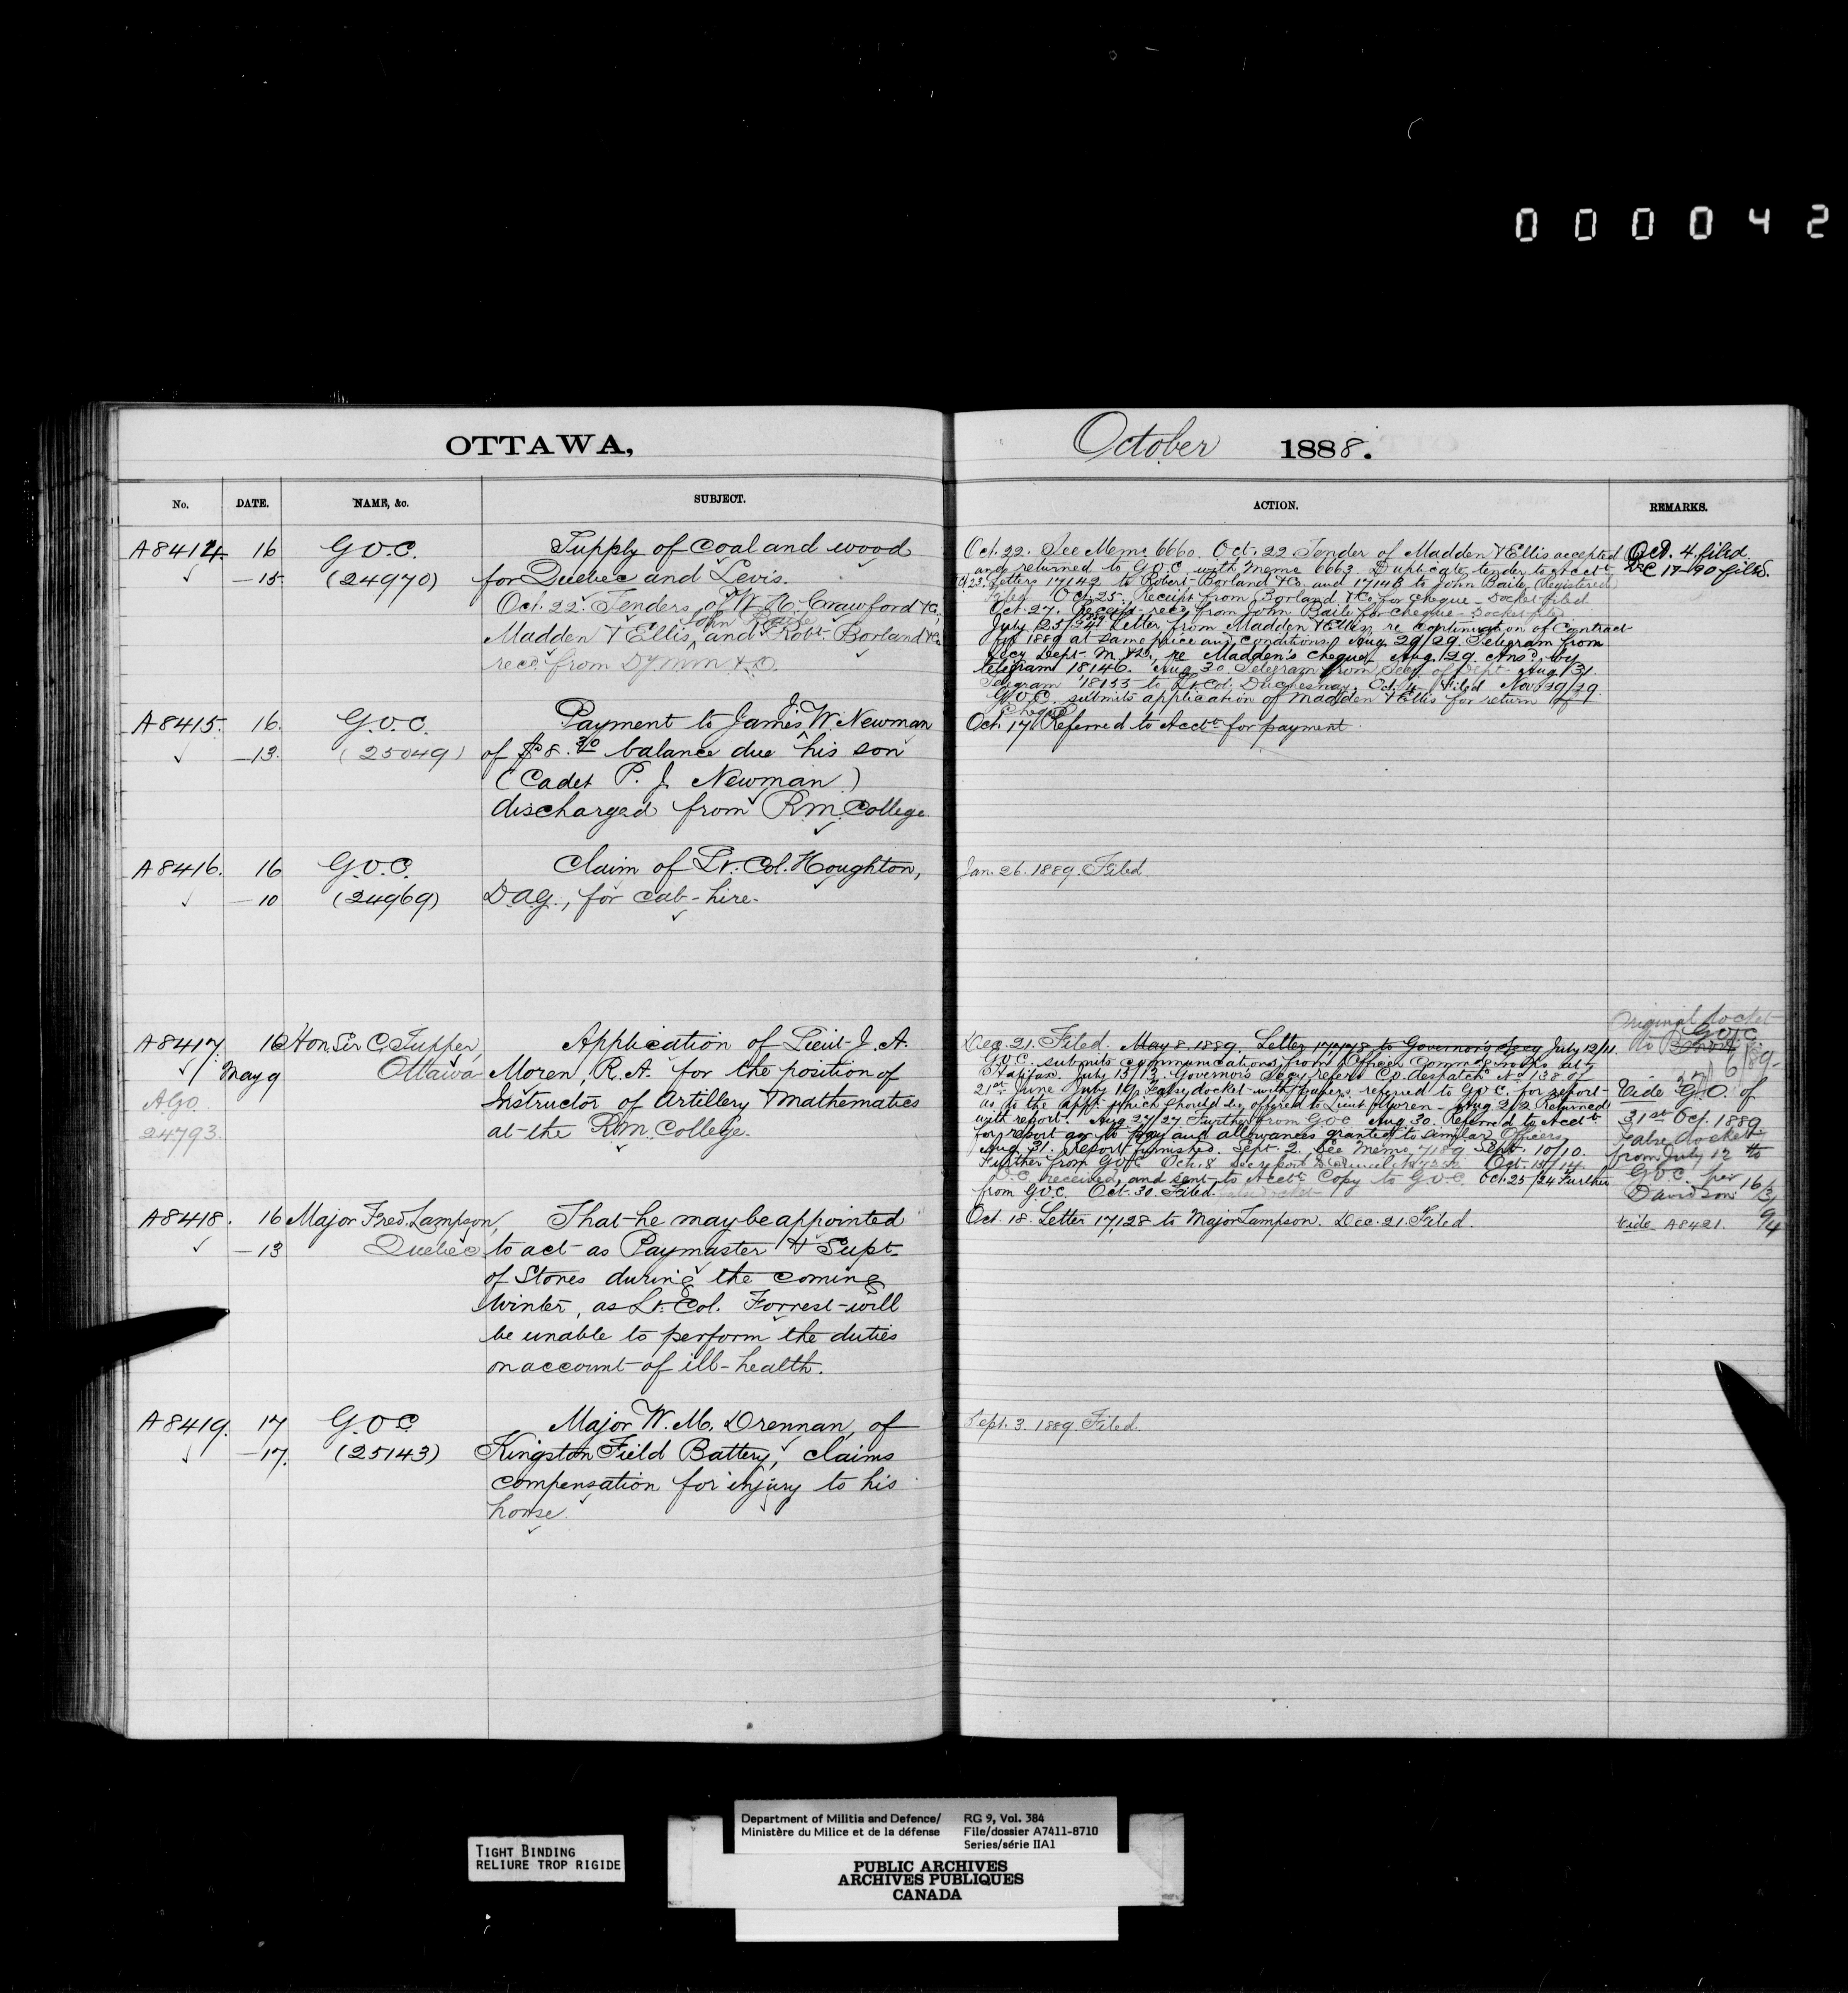 000042
OTTAWA,
No. DATE. NAME, &c. SUBJECT.
A8414 16 G.O.C. Supply of Coal and wood
—15 (24970) for Quebec and Levis.
Oct. 22. Tenders of W. H. Crawford & Co,
John Baile
Madden & Ellis, and Robt. Borland & Co
recd. from
A8415. 16. G.O.C. Payment to James W. Newman
—13. (25049) of $8.30 balance due his son
(Cadet P. J. Newman)
discharged from R.M. College.
A8416. 16 G.O.C. Claim of Lt. Col. Houghton,
—10 (24969) D.A.G., for cab-hire.
A8417. 16 Hon Sir C. Tupper, Application of Lieut J. A.
May 9 Ottawa Moren, R.A. for the position of
AGO. Instructor of Artillery & Mathematics
24793. at the R.M. College.
A8418. 16 Major Fred. Lampson, That he may be appointed
—13 Quebec to act as Paymaster & Supt.
of Stores during the coming
Winter, as Lt. Col. Forrest will
be unable to perform the duties
on account of ill-health.
A8419. 17 G.O.C. Major W. M. Drennan, of
—17. (25143) Kingston Field Battery, claims
compensation for injury to his
horse.
October 1888.
ACTION. REMARKS.
Oct. 22. See Memo 6660. Oct. 22 Tender of Madden & Ellis accepted Oct. 4. filed.
and returned to G.O.C. with Memo 6663. Duplicate tender to Acctt. Dec 17-90 filed.
Oct 23. Letters 17142 to Robert Borland & Co. and 17143 to John Baile, (Registered)
Filed Oct. 25. Receipt from Borland & Co. for cheque - Docket filed
Oct. 27. Receipt recd. from John Baile for cheque - Docket filed
July 25/24 Letter from Madden & Ellis, re continuation of Contract
for 1889 at same price and conditions. Aug. 29/29. Telegram from
Secy Dept. M. & D., re Madden's cheque. Aug. 29. Ansd. by
telegram 18146. Aug. 30 Telegram from Secy. of Dept. Aug 31
Telegram 18153 to Lt. Col. Duchesnay. Oct. 4. Filed Nov 29/29.
G.O.C. submits application of Madden & Ellis for return of
Cheque
Oct. 17 Referred to Acctt. for payment.
Jan. 26. 1889. Filed
Original docket
G.O.C.
Dec. 21. Filed. May 8. 1889. Letter 17778 to Governor's Secy July 12/11. to
G.O.C. submits communications from Officer Commdg troops at
Halifax. July 13/13. Governor's Secy. refers Co. despatch No. 138 of
21st June. July 19. False docket with papers referred to G.O.C. for report Vide G.O. of
as to the appt. which should be offered to Lieut Moren - Aug. 2/2 Returned
with report. Aug. 27/27 Further from G.O.C. Aug. 30. Referred to Acctt. 31st Oct. 1889
for report as to pay and allowances granted to similar Officers False docket
Aug. 31. Report furnished. Sept. 2. See Memo 7189 Sept. 10/10. from July 12 to
Further from G.O.C. Oct. 8 See report to Council Oct. 15/14. G.O.C. per
O.C. received, and sent to Acctt. Copy to G.O.C. Oct. 25/24 Further Davidson 16/3
from G.O.C. Oct. 30. Filed. 9/4
Oct. 18. Letter 17,128 to Major Lampson. Dec. 21. Filed. Vide A8421.
Sept. 3. 1889. Filed.
TIGHT BINDING
RELIURE TROP RIGIDE
Department of Militia and Defence/ RG 9, Vol. 384
Ministère du Milice et de la défense File/dossier A7411-8710
Series/série IIA1
PUBLIC ARCHIVES
ARCHIVES PUBLIQUES
CANADA